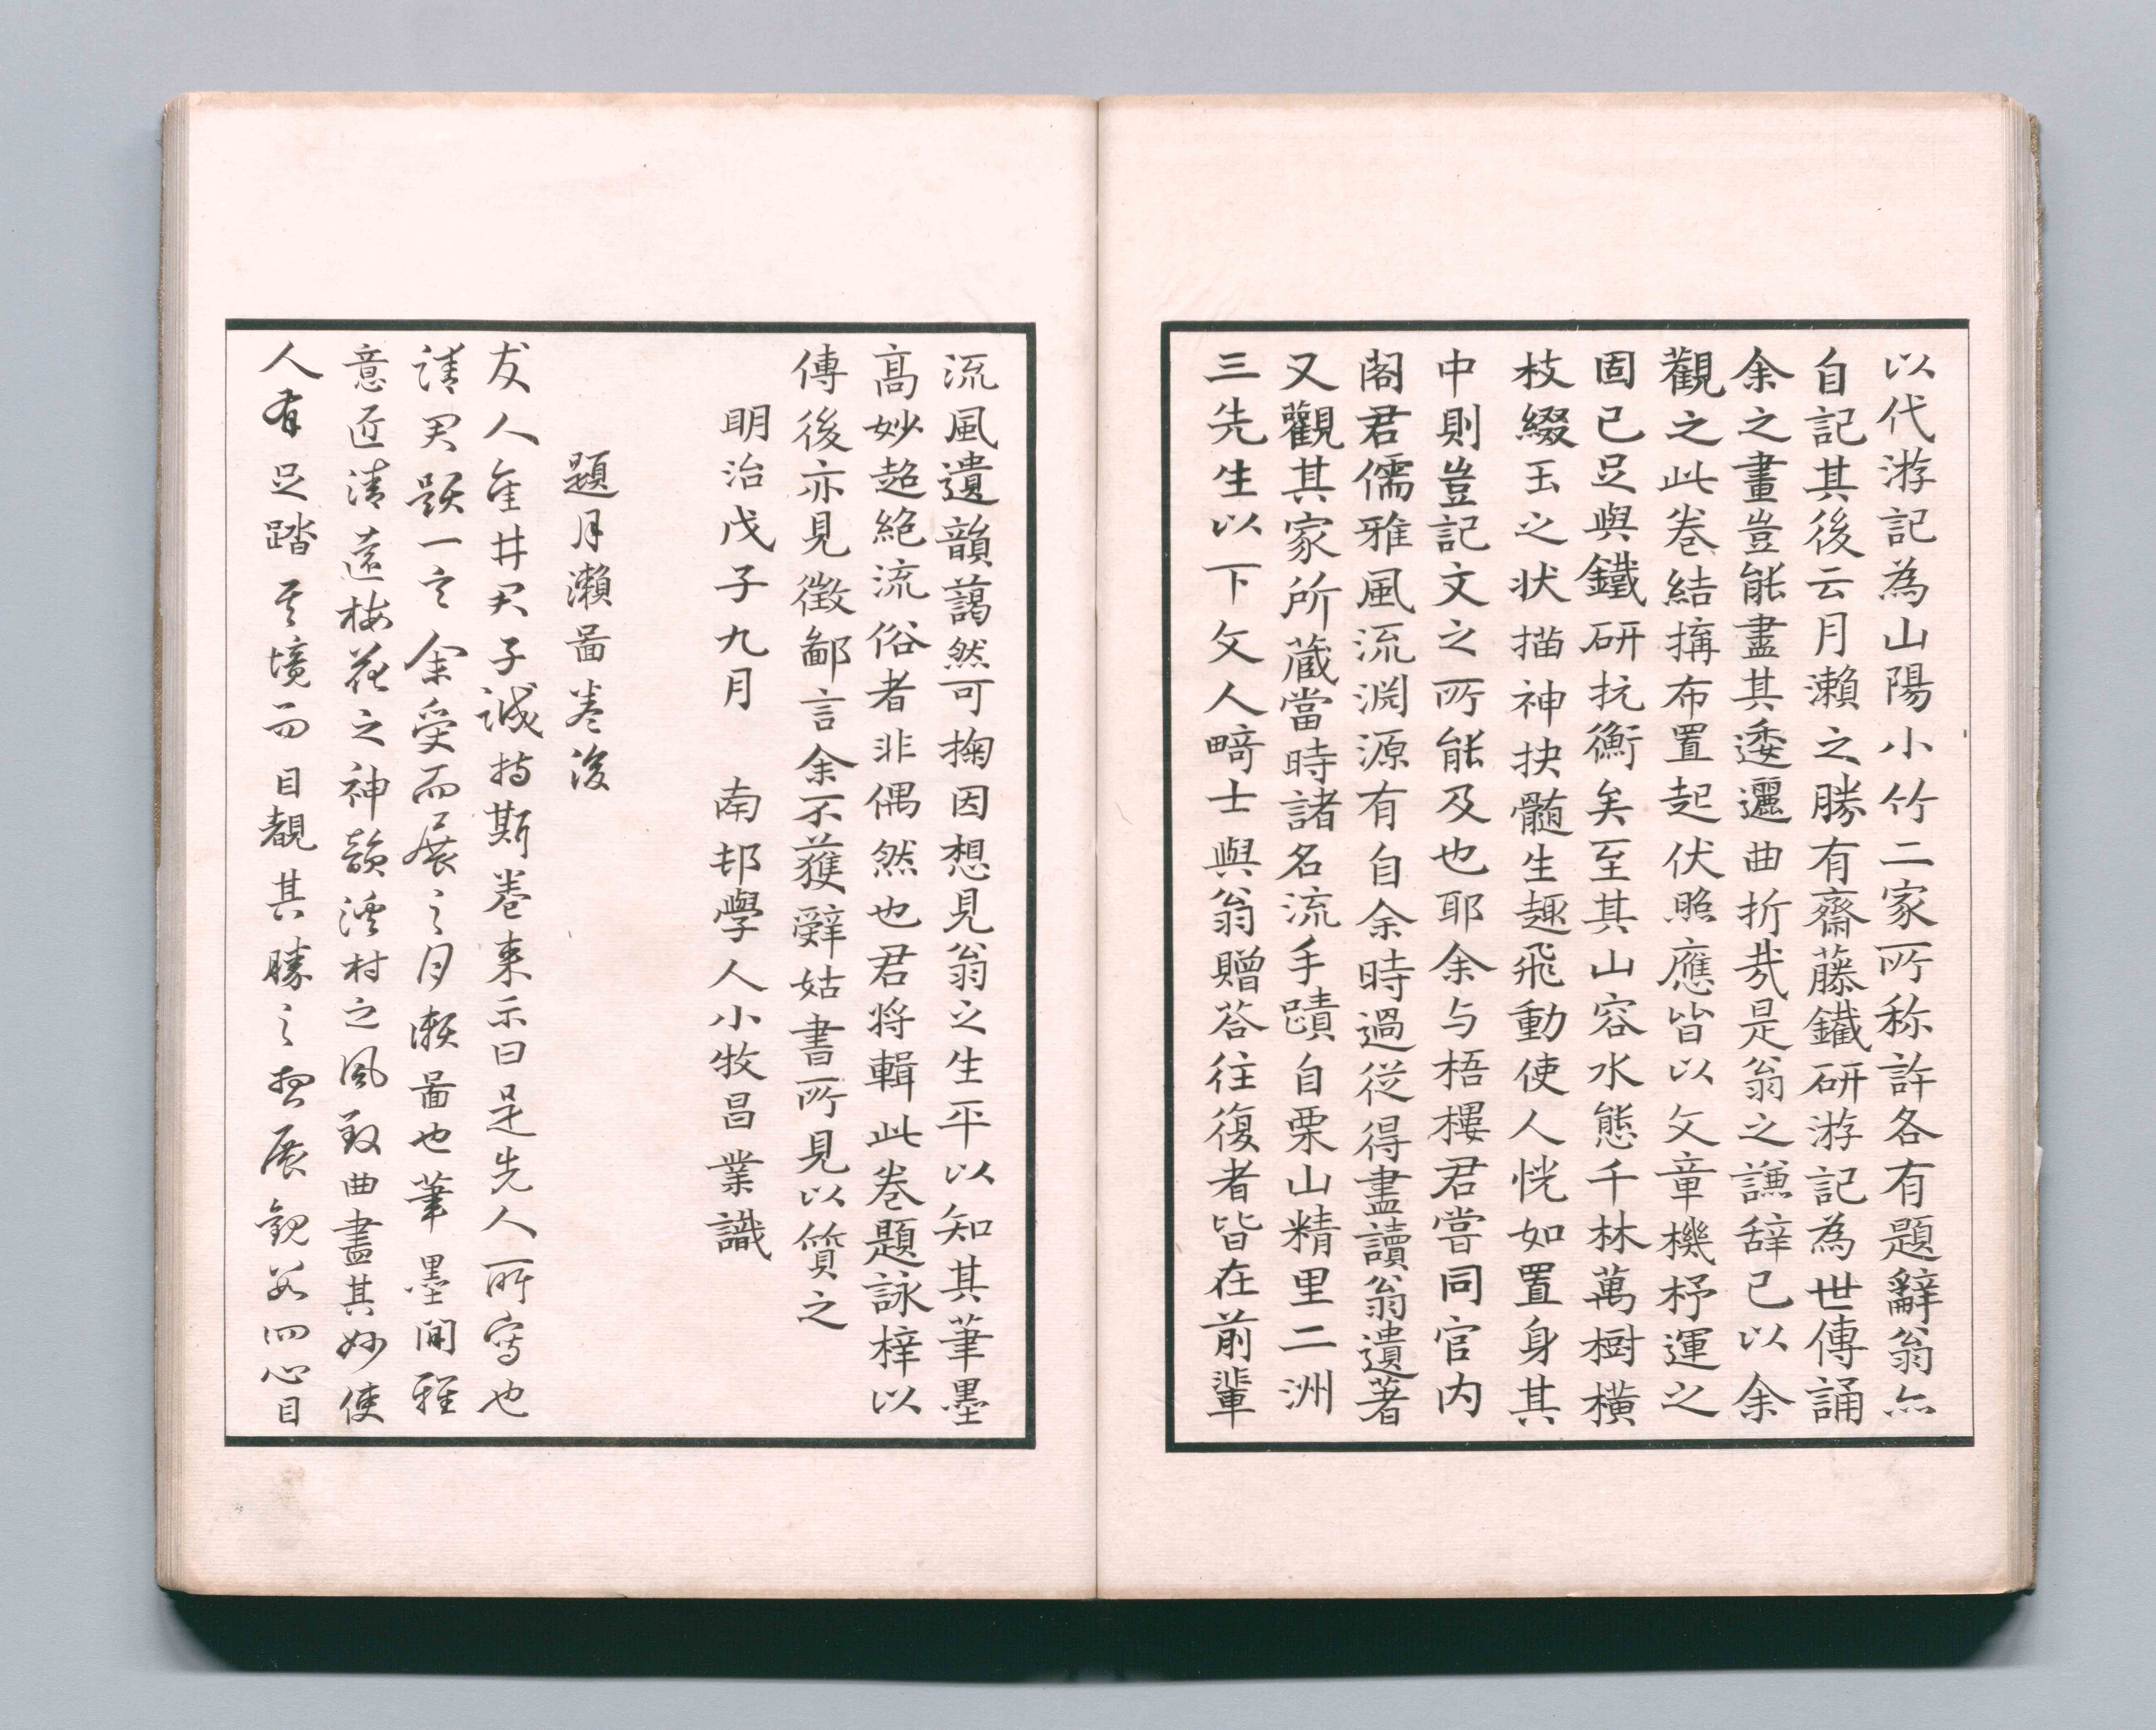 以代游記為山陽小竹二家所称許各有題辭翁亦
自記其後云月瀨之勝有齋藤鐵研游記為世傳誦
余之畫豈能盡其逶邐曲折哉是翁之謙辞已以余
觀之此卷結搆布置起伏照應皆以文章機杼運之
固已足與鐵研抗衡矣至其山容水態千林萬樹橫
枝綴玉之状描神抉髓生趣飛動使人恍如置身其
中則豈記文之所能及也耶余与梧樓君嘗同官内
閣君儒雅風流渊源有自余時過従得盡讀翁遺著
又觀其家所蔵當時諸名流手蹟自栗山精里二洲
三先生以下文人畸士與翁贈荅往復者皆在前輩
流風遺韻藹然可掬因想見翁之生平以知其筆墨
高妙超絶流俗者非偶然也君将輯此卷題詠梓以
傳後亦見徵鄙言余不獲辭姑書所見以質之
明治戊子九月　南邨學人小牧昌業識
題月瀨啚卷後
友人隺井君子誠持斯卷来示曰是先人所寫也
请君题一言余受而展之月瀬啚也筆墨閒雅
意匠清遠梅花之神韻溪村之風致曲盡其妙使
人有足踏其境而目覩其勝之想展観數四心目